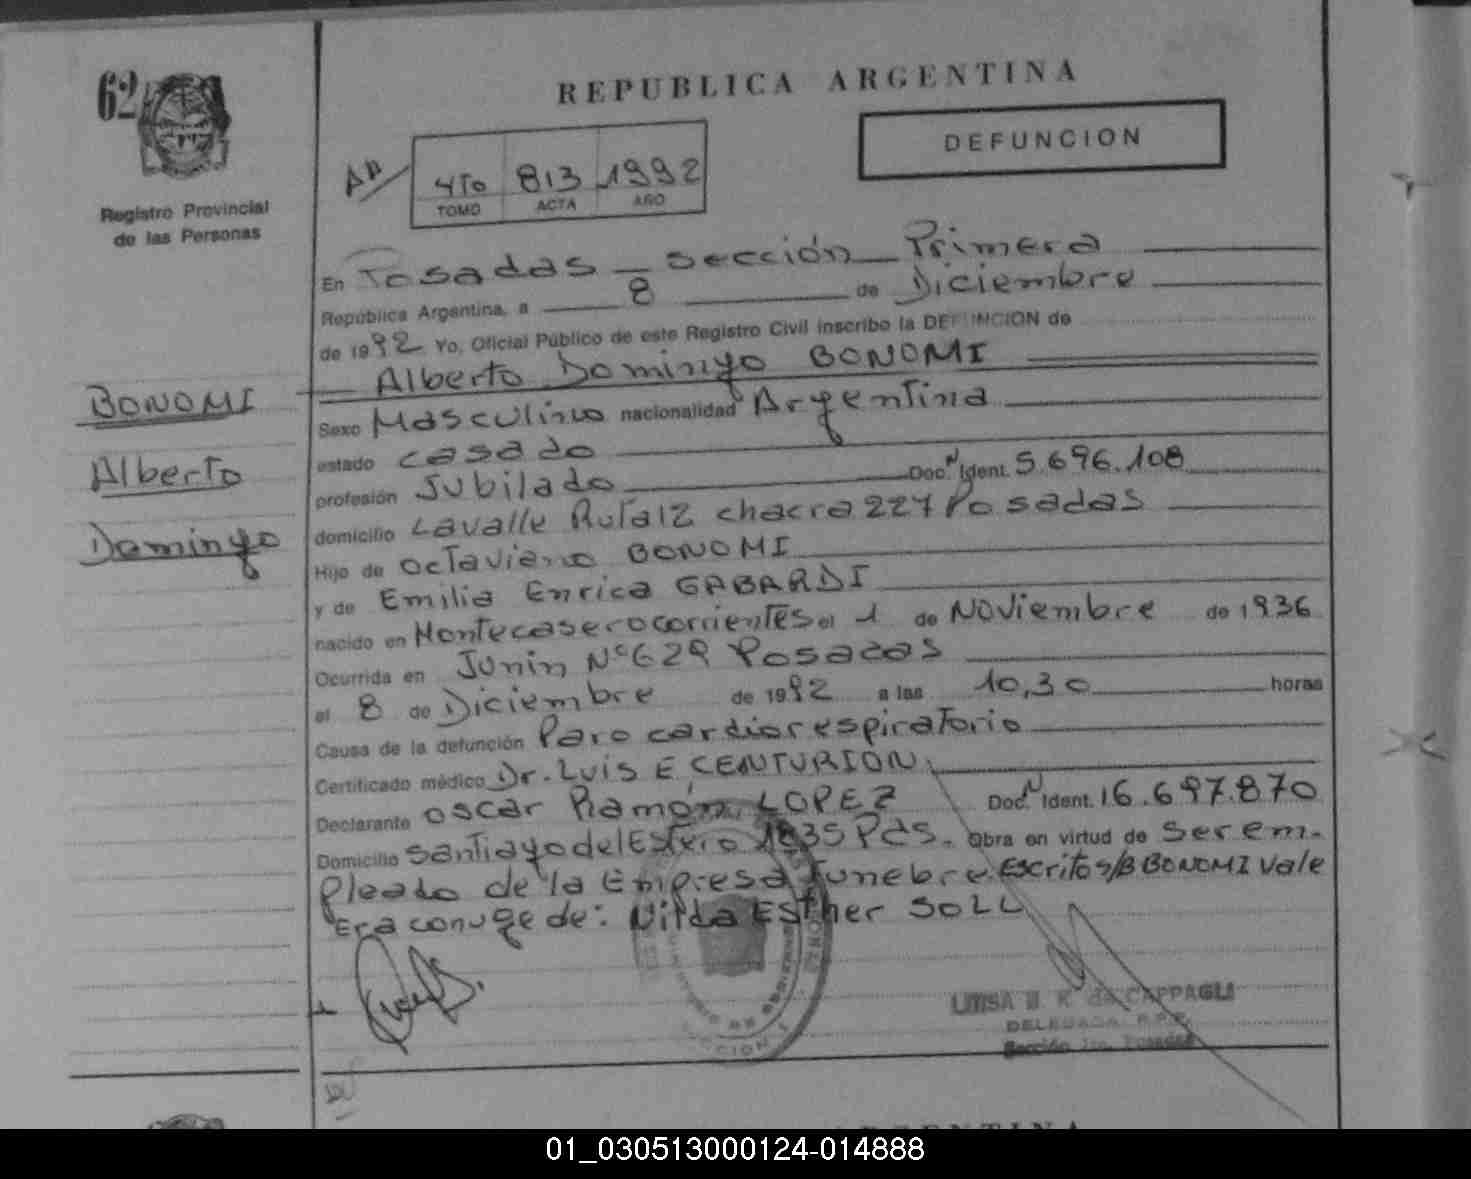 62
REPUBLICA ARGENTINA
DEFUNCION
4To 813 1992
TOMO ACTA AÑO
Registro Provincial
de las Personas
En Posadas - sección Primera
República Argentina, a 8 de Diciembre
de 1992 Yo, Oficial Público de este Registro Civil inscribo la DEFUNCION de
Alberto Domingo BONOMI
BONOMI
Alberto
Domingo
Sexo Masculino nacionalidad Argentina
estado casado
profesión Jubilado Doc. N Ident. 5.696.108
domicilio Lavalle Ruta 12 chacra 227 Posadas
Hijo de Octaviano BONOMI
y de Emilia Enrica GABARDI
nacido en Montecasero Corrientes el 1 de Noviembre de 1936
Ocurrida en Junin Nº 629 Posadas
el 8 de Diciembre de 1992 a las 10,30 horas
Causa de la defunción Paro cardiorespiratorio
Certificado médico Dr. Luis E CENTURION
Declarante Oscar Ramón LOPEZ Doc. N Ident. 16.697.870
Domicilio Santiago del Estero 1835 Pds. Obra en virtud de ser em-
pleado de la Empresa funebre. Escrito s/B BONOMI Vale
Era conuge de: Nilda Esther SOLL
LUISA de CAPPAGLI
DELEGADA R.P.P.
Sección 1ra. Posadas
SECCION 1
ARGENTINA
01_030513000124-014888